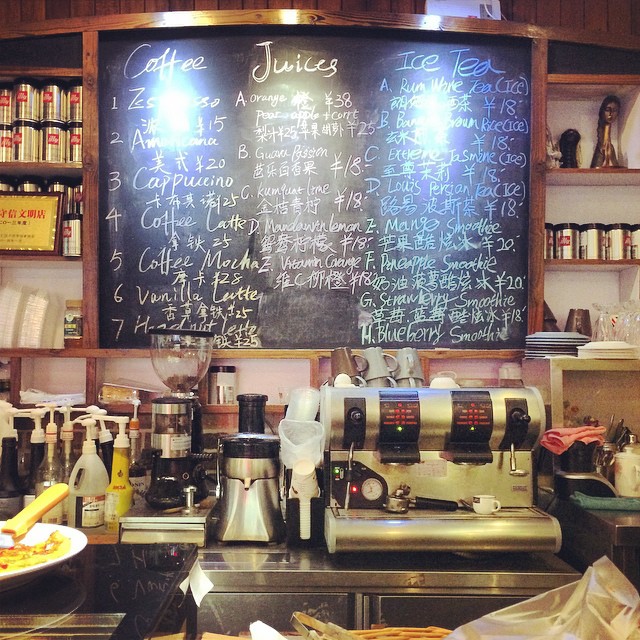 Coffee
1 Espresso
¥15
2 Americana
美式 ¥20
3 Cappuccino
卡布其诺 ¥25
4 Coffee Latte
拿铁 ¥25
5 Coffee Mocha
摩卡 ¥28
6 Vanilla Latte
香草拿铁 ¥25
7 Hazelnut latte
¥25
Juices
A. orange 橙 ¥38
Pear apple + carrot
梨汁¥25 苹果胡卜 ¥25
B. Guava Passion
芭乐百香果 ¥18
C. kumquat lime
金桔青柠 ¥18
D. Mandarin lemon
¥18
E. Vitamin Orange
维C柳橙 ¥18
Ice Tea
A. Rum Tea (Ice)
¥18
B. Brown Rice (Ice)
¥18
C. Extreme Jasmine (Ice)
至尊茉莉 ¥18
D. Louis Persian Tea (Ice)
路易波斯茶 ¥18
E. Mango Smoothie
酷炫冰 ¥20
F. Pineapple Smoothie
奶油菠萝酷炫冰 ¥20
G. Strawberry Smoothie
酷炫冰 ¥18
H. Blueberry Smoothie
守信文明店